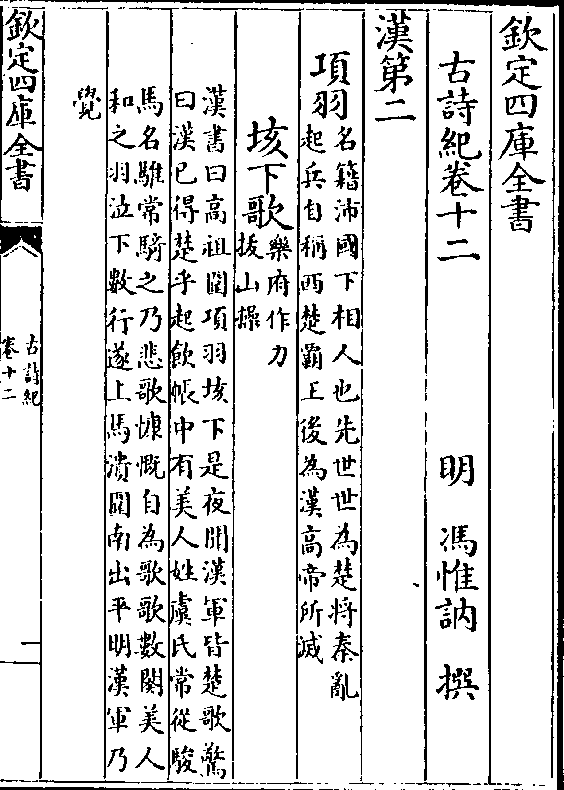 欽定四庫全書
古詩紀卷十二
明 馮惟訥 撰
漢第二
項羽
名籍沛國下相人也先世世為楚將秦亂
起兵自稱西楚霸王後為漢高帝所滅
垓下歌
樂府作力
拔山操
漢書曰高祖圍項羽垓下是夜聞漢軍皆楚歌驚
曰漢已得楚乎起飲帳中有美人姓虞氏常從駿
馬名騅常騎之乃悲歌慷慨自為歌歌數闋美人
和之羽泣下數行遂上馬潰圍南出平明漢軍乃
覺
欽定四庫全書
古詩紀
卷十二
一